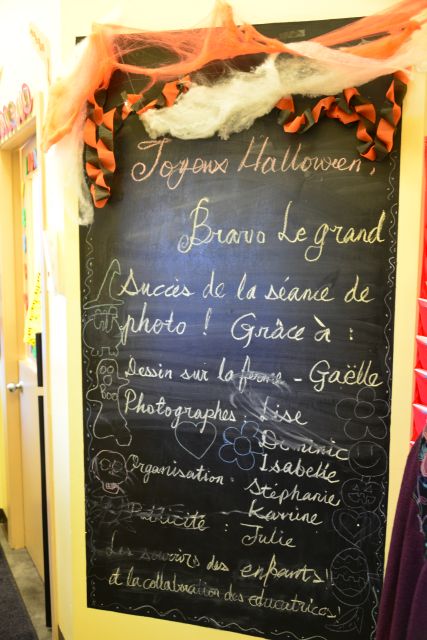 Joyeux Halloween,
Bravo Le grand
Succès de la séance de
photo ! Grâce à :
Dessin sur la ferme - Gaëlle
Photographes : Lise
Dominic
Isabelle
Organisation : Stéphanie
Karine
Publicité : Julie
Les sourirs des enfants!
et la collaboration des educatrices!
BOO